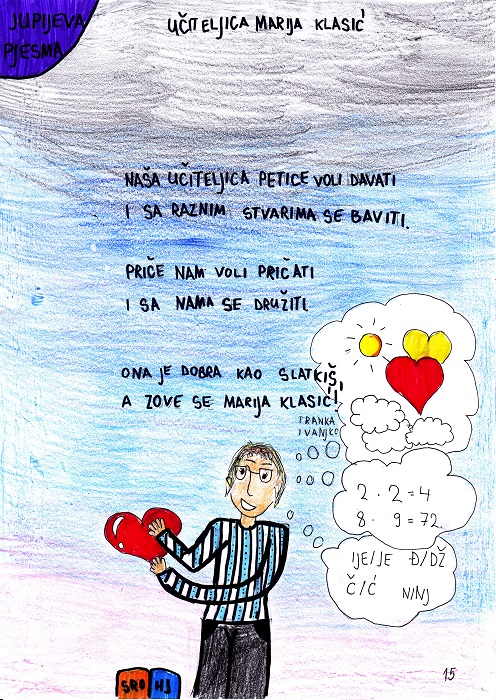 JUPIJEVA
PJESMA
UČITELJICA MARIJA KLASIĆ
NAŠA UČITELJICA PETICE VOLI DAVATI
I SA RAZNIM STVARIMA SE BAVITI.
PRIČE NAM VOLI PRIČATI
I SA NAMA SE DRUŽITI.
ONA JE DOBRA KAO SLATKIŠ,
A ZOVE SE MARIJA KLASIĆ!
FRANKA
IVANJKO
2 · 2 = 4
8 · 9 = 72.
IJE/JE Đ/DŽ
Č/Ć N/NJ
SRO HJ
15